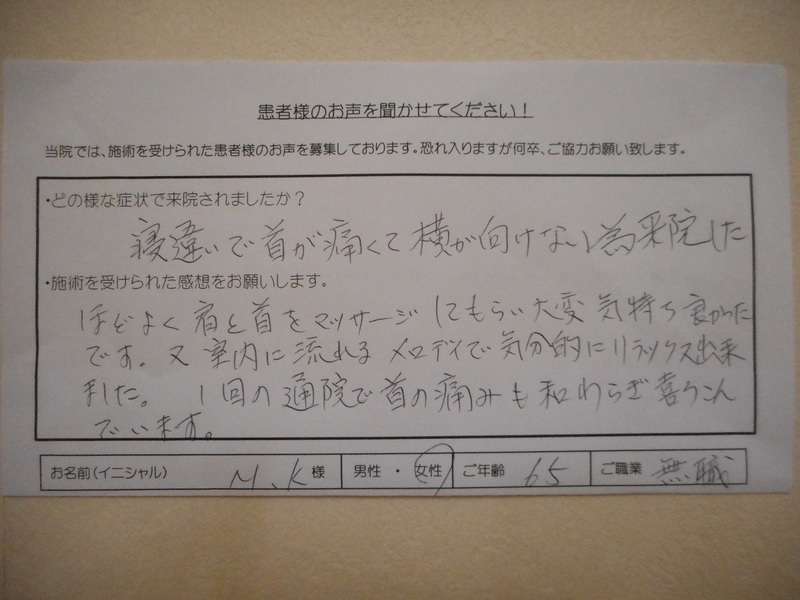 患者様のお声を聞かせてください！
当院では、施術を受けられた患者様のお声を募集しております。恐れ入りますが何卒、ご協力お願い致します。
・どの様な症状で来院されましたか？
寝違いで首が痛くて横が向けない為来院した
・施術を受けられた感想をお願いします。
ほどよく肩と首をマッサージしてもらい大変気持ち良かった
です。又室内に流れるメロディで気分的にリラックス出来
ました。1回の通院で首の痛みも和わらぎ喜りこん
でいます。
お名前（イニシャル） M.K 様 男性・女性 ご年齢 65 ご職業 無職